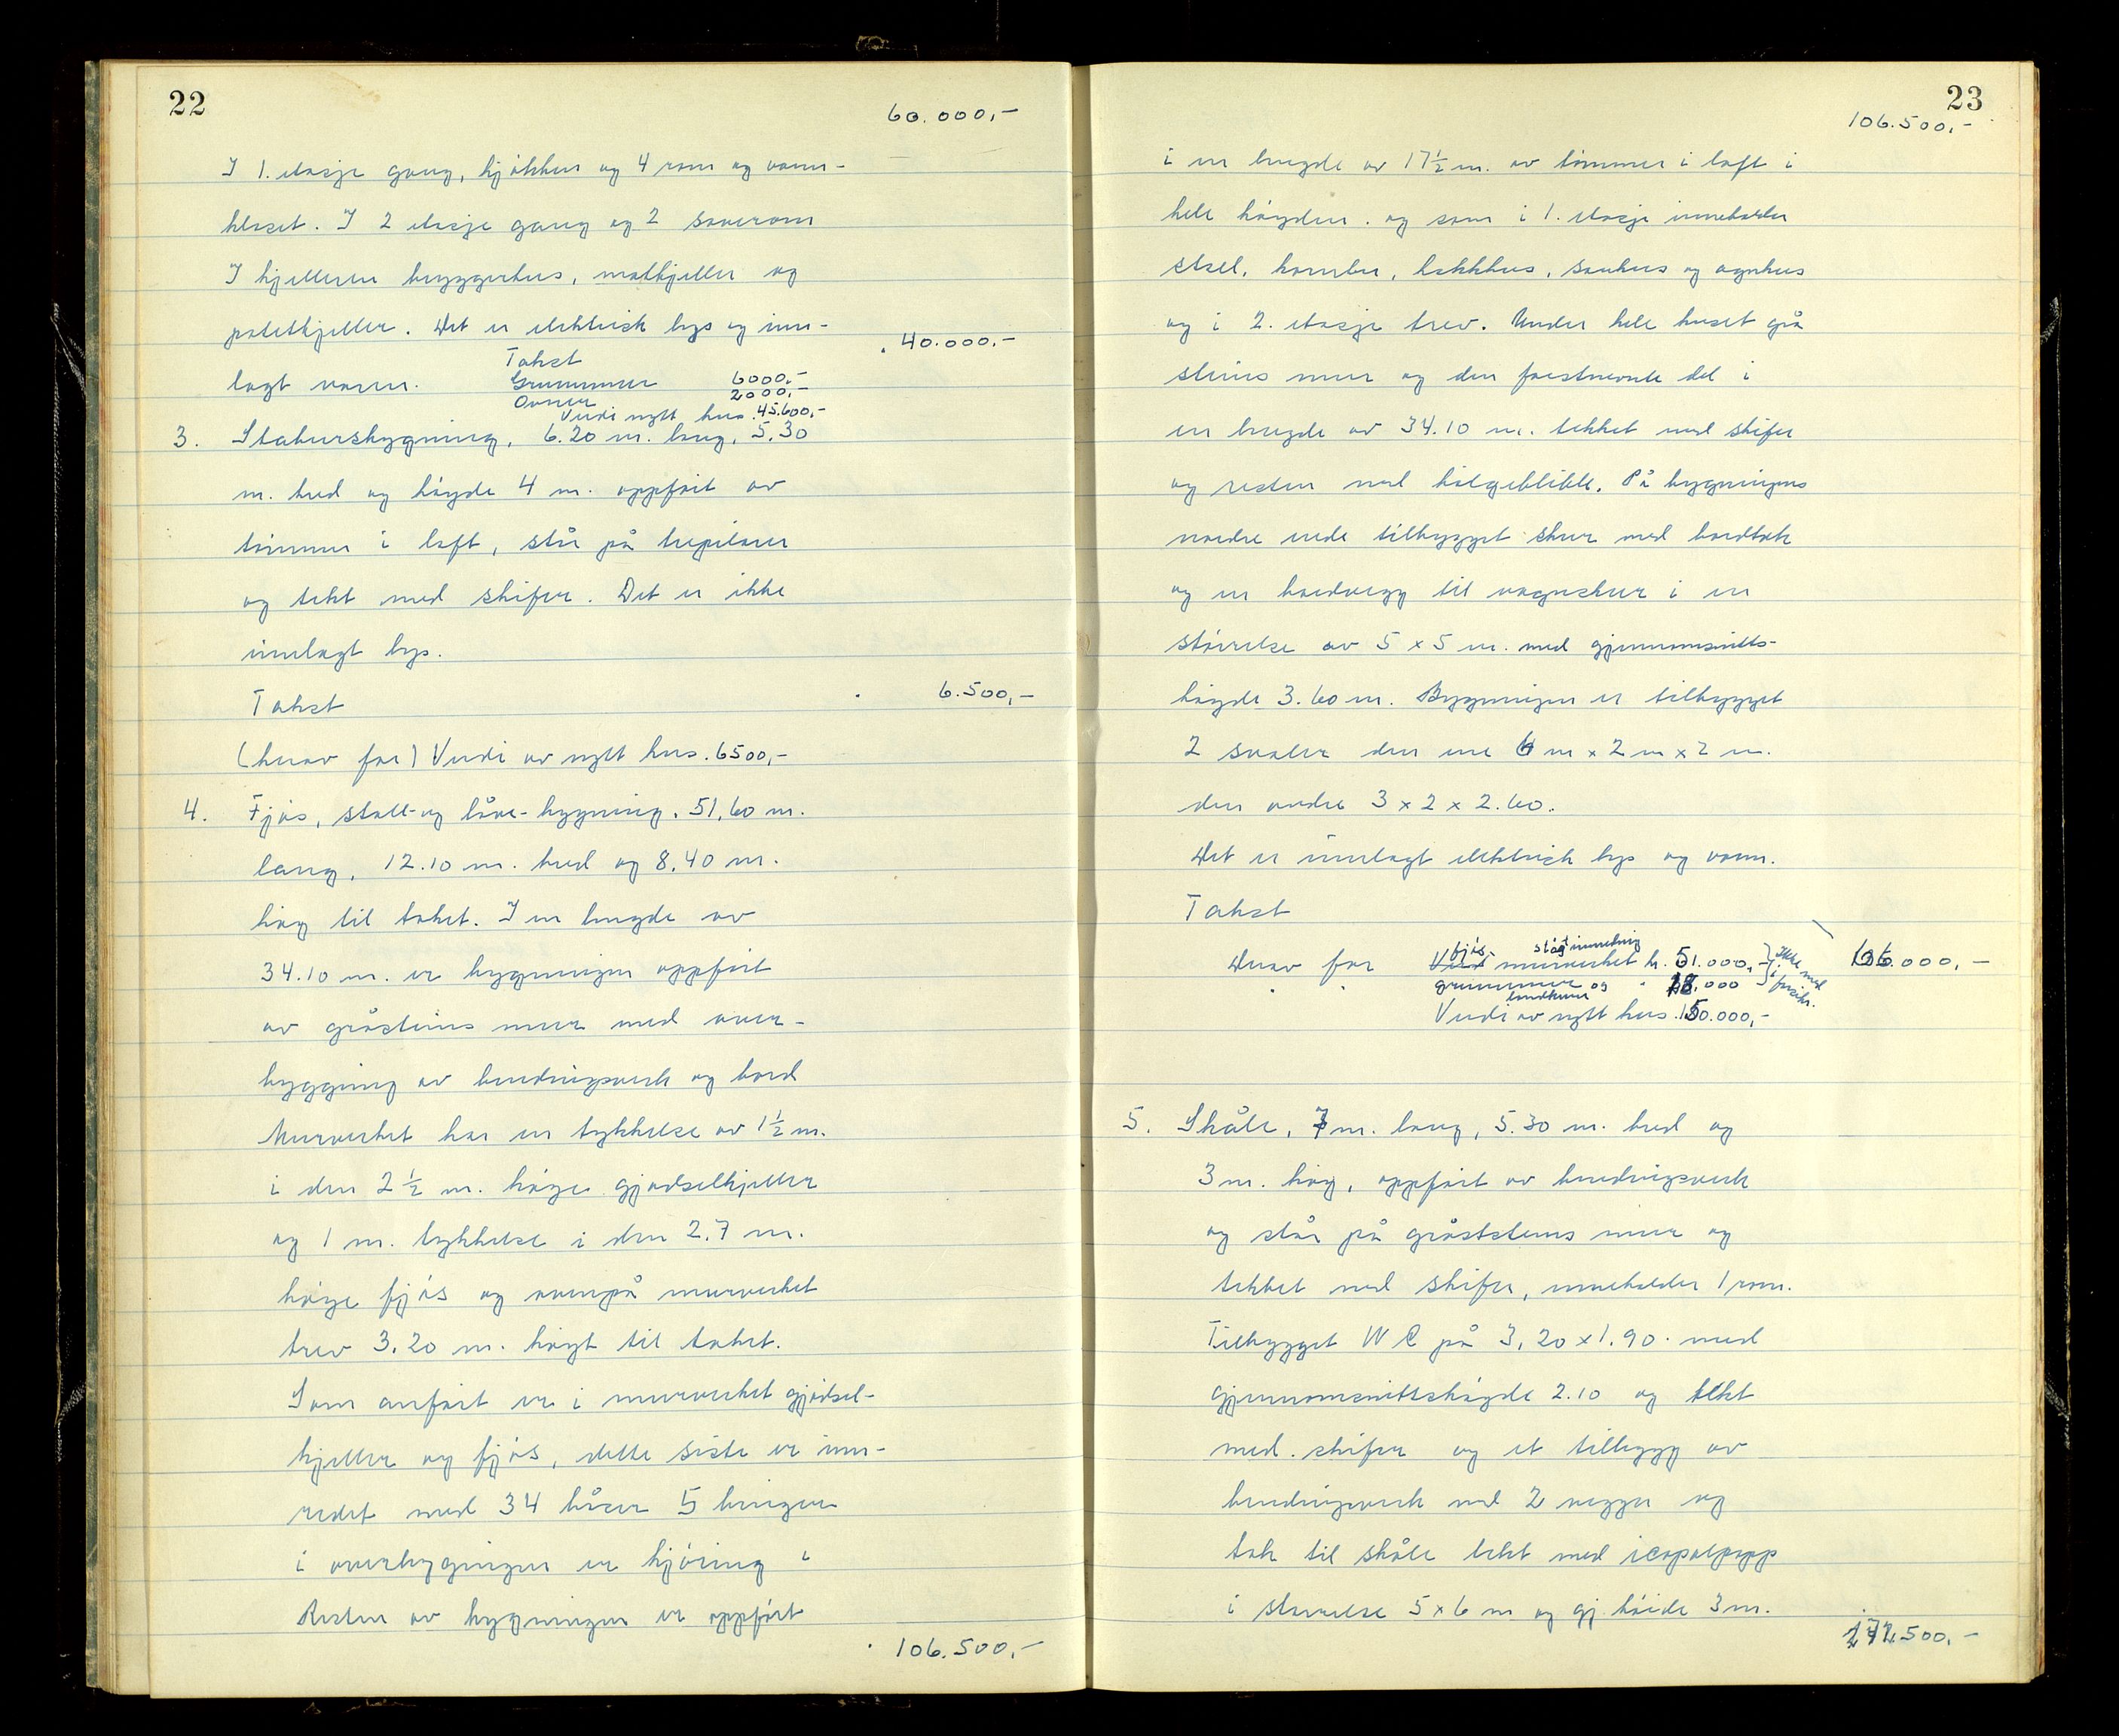 22
60.000,-
I 1. etasje gang, kjökken og 4 rom og vann-
kloset. I 2 etasje gang og 2 soverom
I kjelleren bryggerhus, matkjeller og
potetkjeller. Det er elektrisk lys og inn-
lagt vann. Takst . 40.000,-
Grunnmur 6000,-
Ovner 2000,-
Verdi nytt hus . 45.600,-
3. Stabursbygning, 6.20 m. lang, 5.30
m. bred og höyde 4 m. oppfört av
tömmer i laft, står på trepilarer
og tekt med skifer. Det er ikke
innlagt lys.
Takst . 6.500,-
(herav for) Verdi av nytt hus . 6500,-
4. Fjös, stall- og låve-bygning. 51,60 m.
lang, 12.10 m. bred og 8.40 m.
höy til taket. I en lengde av
34.10 m. er bygningen oppfört
av gråsteins mur med over-
bygging av bendingsverk og bord
Murverket har en tykkelse av 1½ m.
i den 2½ m. höye gjödselkjeller
og 1 m. tykkelse i den 2.7 m.
höye fjös og ovenpå murverket
trev 3.20 m. höyt til taket.
Som anfört er i murverket gjödsel-
kjeller og fjös, dette siste er inn-
redet med 34 båser 5 binger
i overbygningen er kjöring i
Resten av bygningen er oppfört
. 106.500,-
23
106.500,-
i en lengde av 17½ m. av tömmer i laft i
hele höyden. og som i 1. etasje inneholder
stall, hakkhus, sauhus og agnhus
og i 2. etasje trev. Under hele huset grå
steins mur og den förstnevnte del i
en lengde av 34.10 m. tekket med skifer
og resten med bölgeblikk. På bygningens
nordre ende tilbygget skur med bordtak
og en bordvegg til vognskur i en
störrelse av 5 x 5 m. med gjennomsnitts-
höyde 3.60 m. Bygningen er tilbygget
2 svaler den ene 6 m x 2 m x 2 m.
den andre 3 x 2 x 2.60.
Det er innlagt elektrisk lys og vann.
Takst
Derav for fjös murverket stög innredning k. 51.000,- Ikke med i forsikr. 166.000,-
" " grunnmur og " 18.000
Verdi av nytt hus . 150.000,-
5. Skåle, 7 m. lang, 5.30 m. bred og
3 m. höy, oppfört av bendingsverk
og står på gråststens mur og
tekket med skifer, inneholder 1 rom.
Tilbygget W C på 3,20 x 1.90. med
gjennomsnittshöyde 2.10 og tekt
med skifer og et tilbygg av
bendingsverk med 2 vegger og
tak til skåle tekt med icopalpapp
i störrelse 5 x 6 m og gj. höide 3 m.
272.500,-